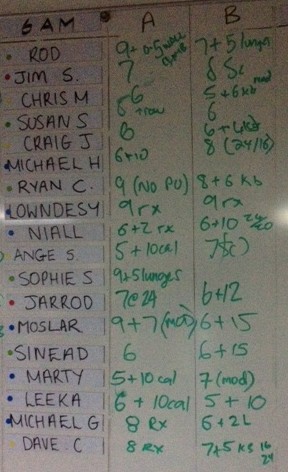 6 AM A B
ROD 9+ 7+5 lunges
JIM S. 7
CHRIS M 6 5+6 kb
SUSAN S 6
CRAIG J 6 8 (24/16)
MICHAEL H 6+10
RYAN C. 9 (NO PU) 8+6 Kb
LOWNDESY 9 rx 9 rx
NIALL 6+2 rx 6+10
ANGE S. 5+10cal
SOPHIE S 9+5 lunges
JARROD 7@24 6+12
MOSLAR 9+7 (mod) 6+15
SINEAD 6 6+15
MARTY 5+10 cal 7 (mod)
LEEKA 6+10cal 5+10
MICHAEL G 8 Rx 6+2L
DAVE C 8 Rx 7+5 16 24